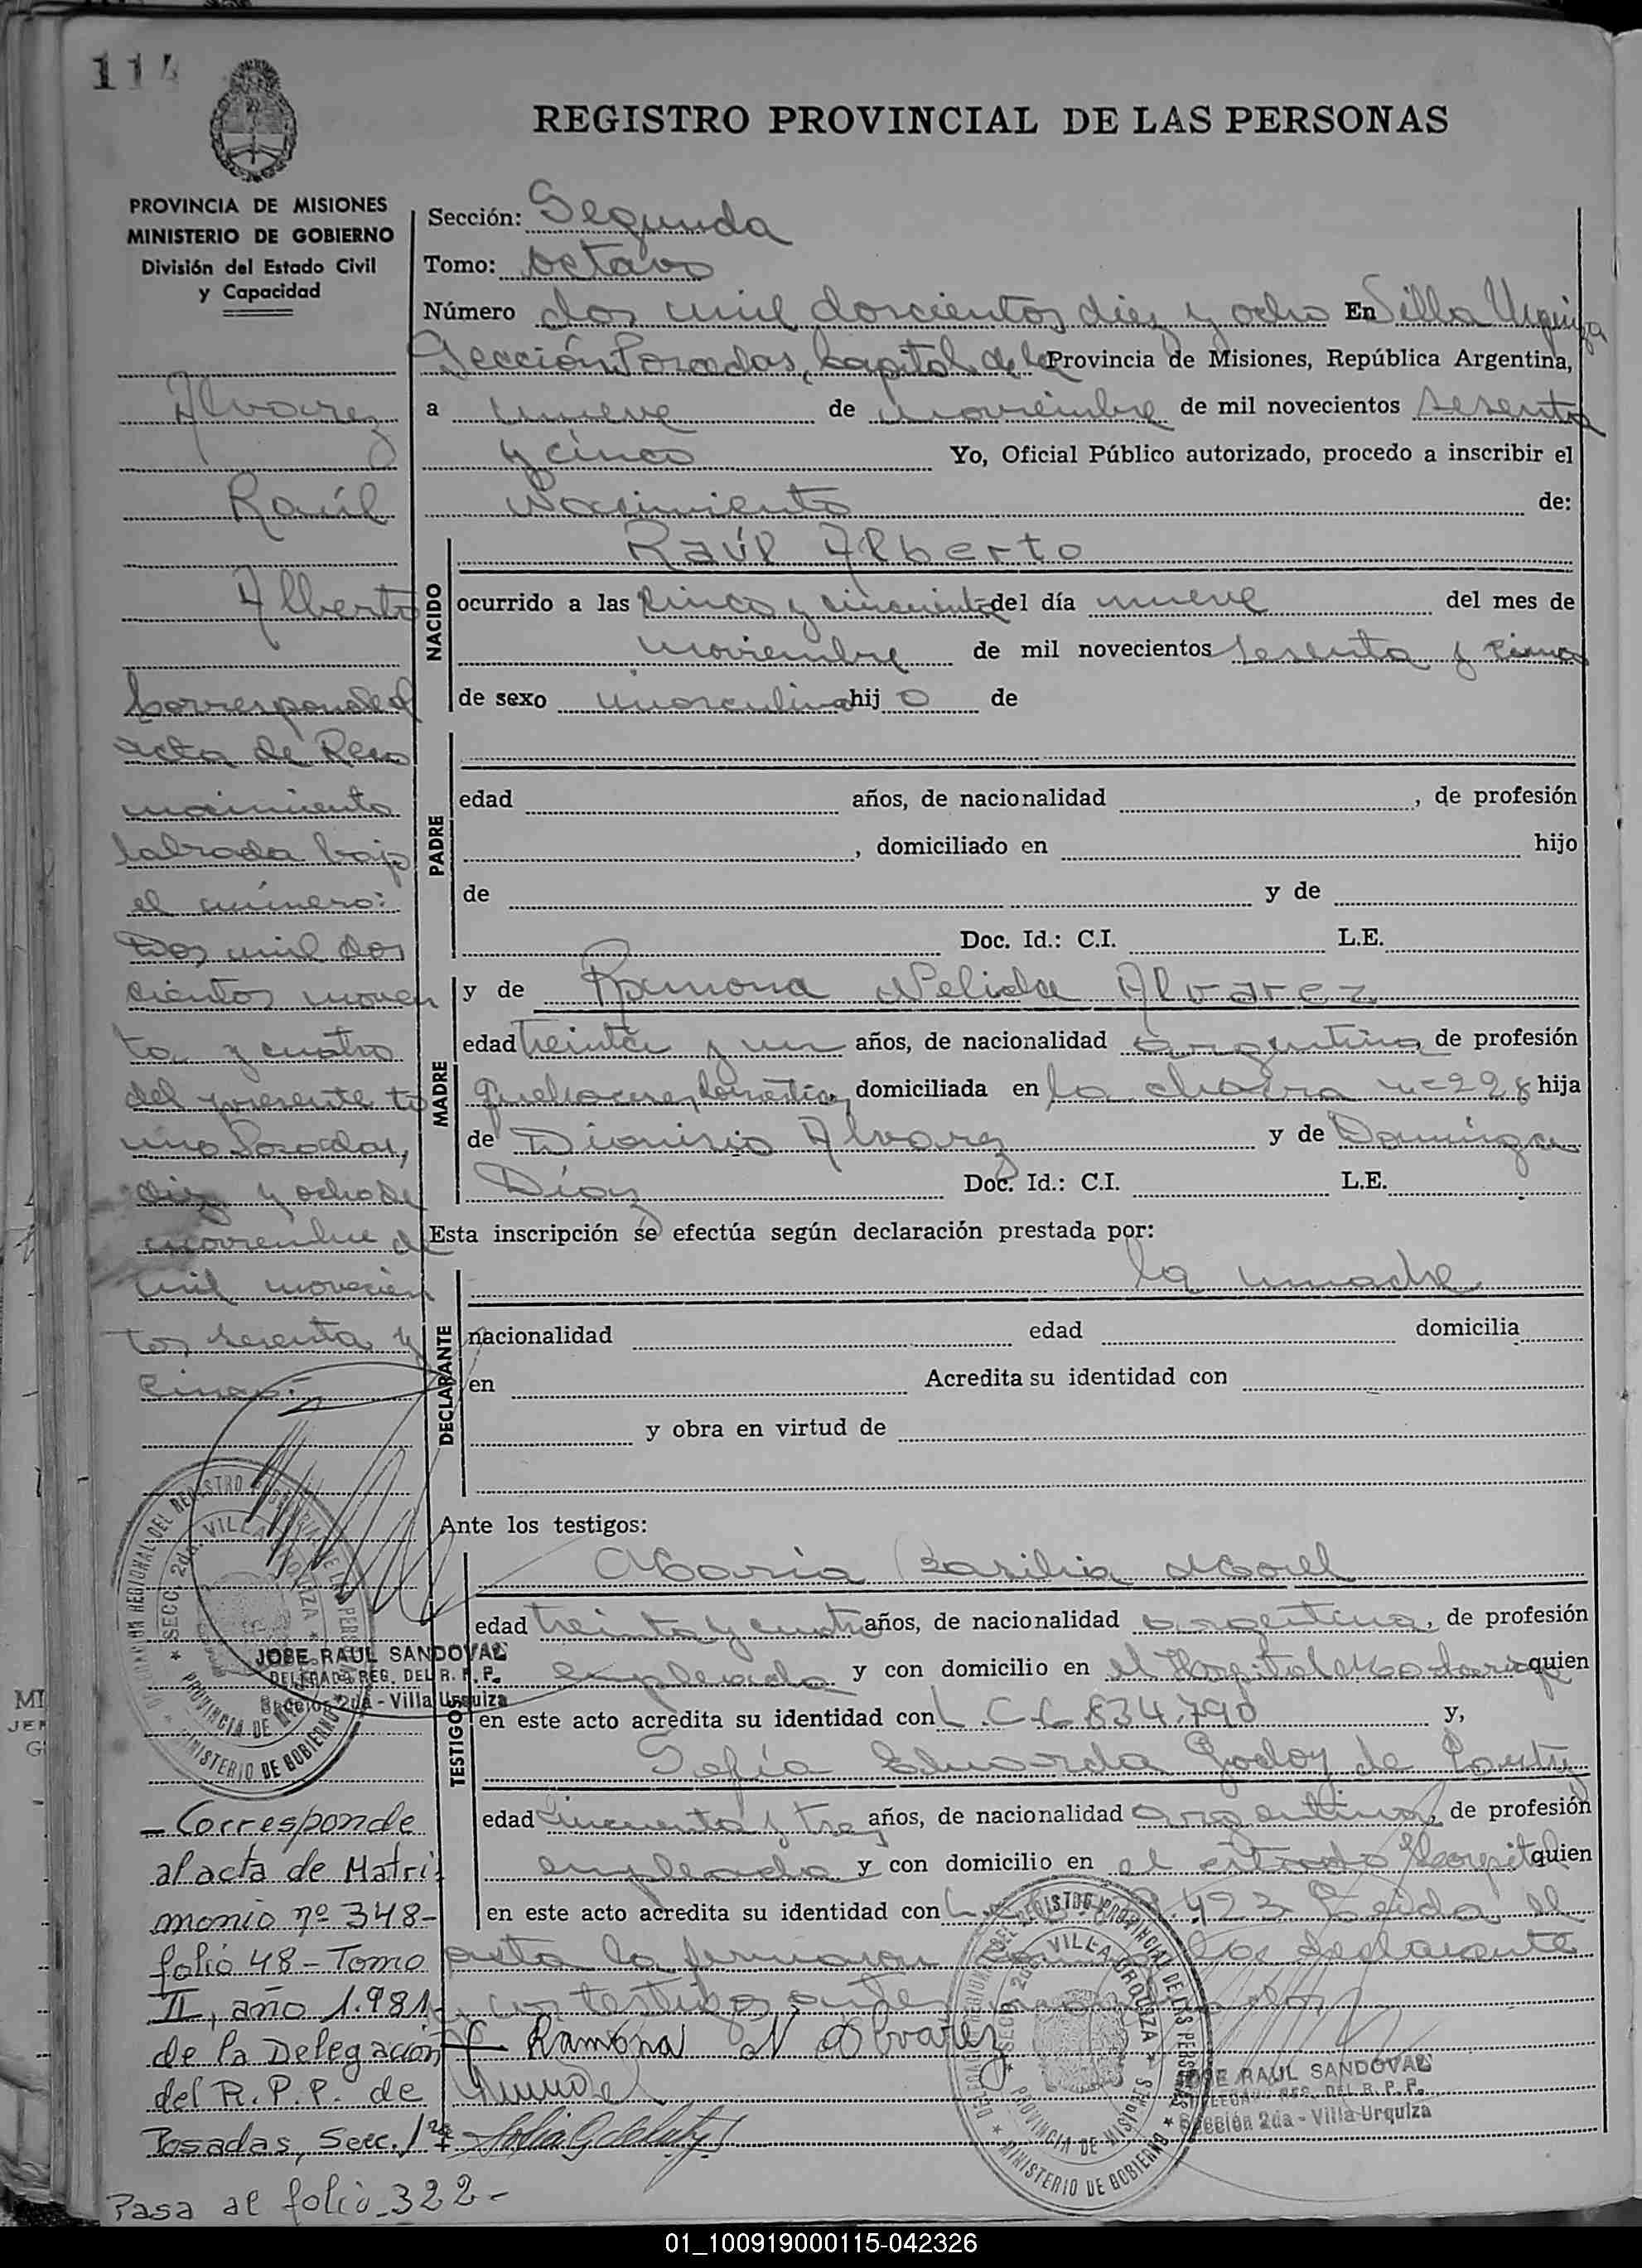 114
REGISTRO PROVINCIAL DE LAS PERSONAS
PROVINCIA DE MISIONES
MINISTERIO DE GOBIERNO
División del Estado Civil
y Capacidad
Alvarez
Raúl
Alberto
Corresponde al
acta de Reco
nocimiento
labrada bajo
el número:
Dos mil dos
cientos noven
ta y cuatro
del presente to
mo Posadas,
diez y ocho de
noviembre de
mil novecien
tos sesenta y
cinco.-
JOSE RAUL SANDOVAL
DELEGADO REG. DEL R. P. P.
Sección 2da - Villa Urquiza
- Corresponde
al acta de Matri
monio nº 348-
folio 48 - Tomo
II, año 1.981-
de la Delegación
del R.P.P. de
Posadas, Secc. 1ª
Pasa al folio 322-
Sección: Segunda
Tomo: octavo
Número dos mil doscientos diez y ocho En Villa Urquiza
Sección Posadas, capital de la Provincia de Misiones, República Argentina,
a nueve de noviembre de mil novecientos sesenta
y cinco Yo, Oficial Público autorizado, procedo a inscribir el
Nacimiento de:
NACIDO
Raúl Alberto
ocurrido a las cinco y cincuenta del día nueve del mes de
noviembre de mil novecientos sesenta y cinco
de sexo masculino hijo de
PADRE
edad años, de nacionalidad , de profesión
, domiciliado en hijo
de y de
Doc. Id.: C.I. L.E.
MADRE
y de Ramona Nelida Alvarez
edad treinta y un años, de nacionalidad argentina, de profesión
quehaceres domésticos, domiciliada en la chacra nº 228 hija
de Dionisio Alvarez y de Dominga
Díaz Doc. Id.: C.I. L.E.
Esta inscripción se efectúa según declaración prestada por:
DECLARANTE
la madre
nacionalidad edad domicilia
en Acredita su identidad con
y obra en virtud de
Ante los testigos:
TESTIGOS
María Basilia Morel
edad treinta y cuatro años, de nacionalidad argentina, de profesión
empleada y con domicilio en el Hospital quien
en este acto acredita su identidad con L.C 6.834.790 y,
Sofía Eduarda Godoy de
edad cincuenta y tres años, de nacionalidad argentina, de profesión
empleada y con domicilio en el citado Hospital quien
en este acto acredita su identidad con L. 423 Leida el
acta la firmaron los declarante
y los testigos ante
Ramona N Alvarez
JOSE RAUL SANDOVAL
DELEGADO REG. DEL R. P. P.
Sección 2da - Villa Urquiza
DELEGACION REGIONAL DEL REGISTRO PROVINCIAL DE LAS PERSONAS
SECC. 2da. VILLA URQUIZA
PROVINCIA DE MISIONES
MINISTERIO DE GOBIERNO
01_100919000115-042326